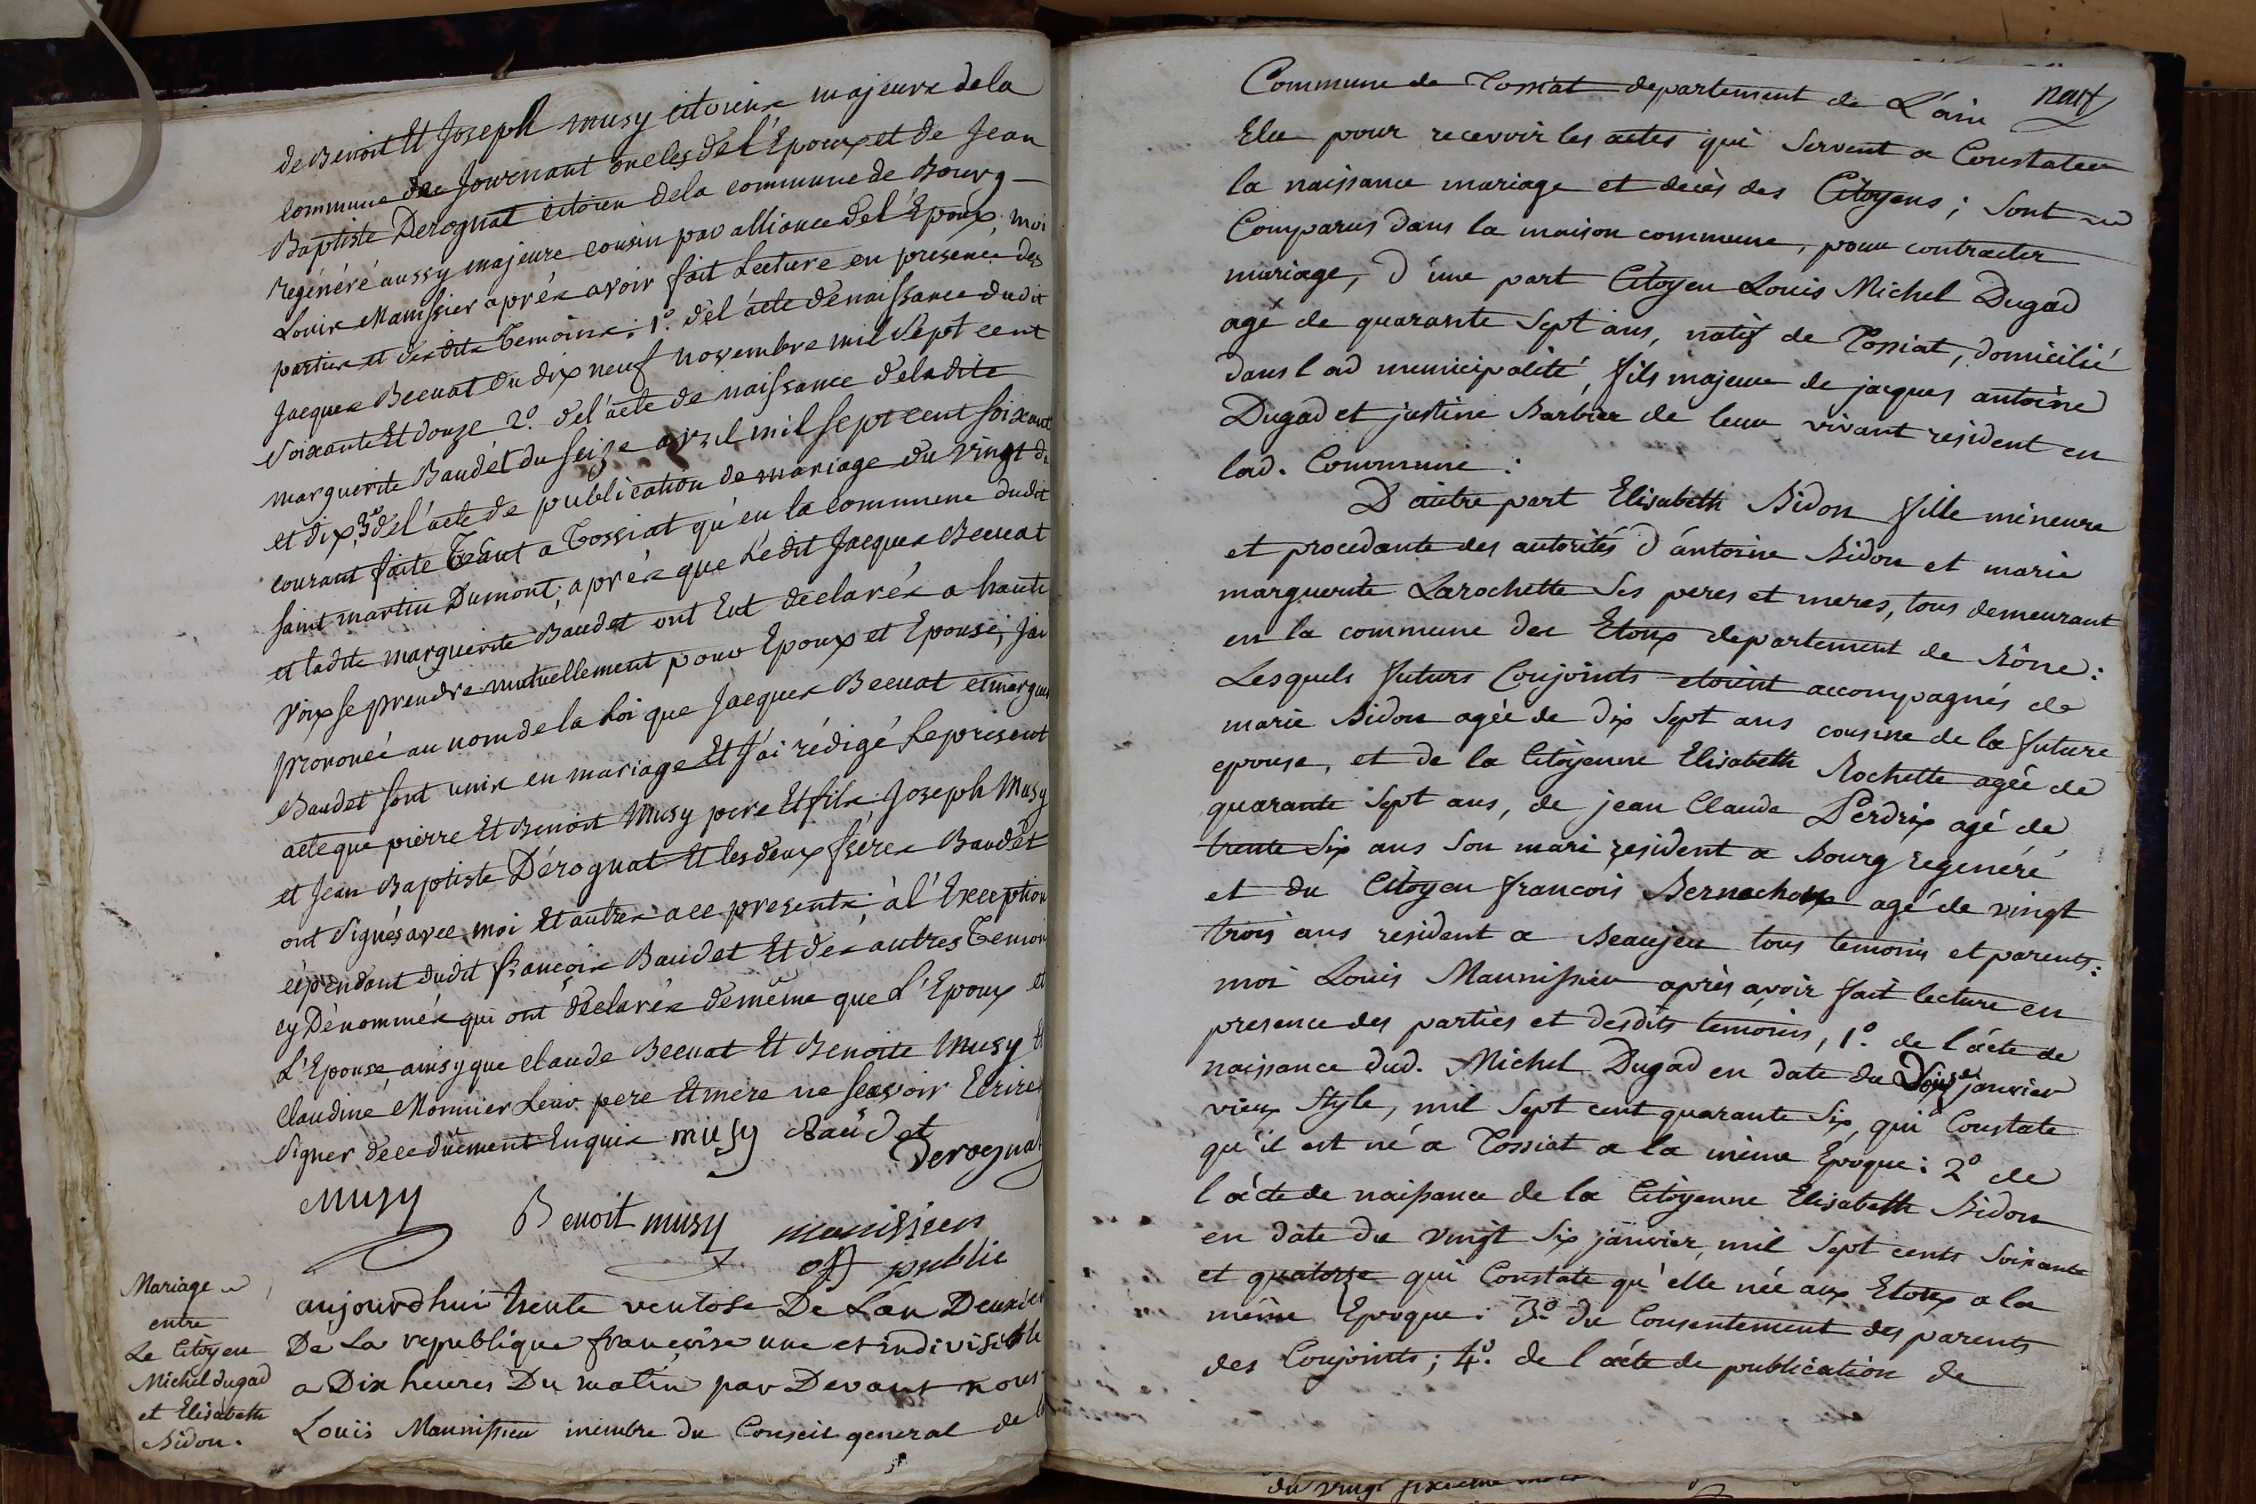 de Benoit Et Joseph musy citoiens majeurs de la
commune de Journant oncles de l'Epoux et de Jean
Baptiste Derognat citoien de la commune de Bourg
regénéré aussy majeure cousin par alliance de l'Epoux, moi
Louis Manissier aprés avoir fait Lecture en présence des
parties et desdits Temoins; 1o. de l'acte de naissance dudit
Jacques Becuat du dix neuf novembre mil sept cent
soixante Et douze 2o. de l'acte de naissance de la dite
marguerite Baudet du seize avril mil sept cent soixante
et dix 3o de l'acte de publication de mariage du vingt du
courant faite Tant a Tossiat qu'en la commune dudit
saint martin Dumont; aprés que Ledit Jacques Becuat
et ladite marguerite Baudet ont Eut declarés a haute
voix se prendre mutuellement pour Epoux et Epouse; J'ai
prononcé au nom de la Loi que Jacques Becuat et margue
Baudet sont unis en mariage Et J'ai rédigé Le present
acte que pierre Et Benoit Musy pere Et fils Joseph Musy
et Jean Baptiste Dérognat Et les deux fréres Baudet
ont signés avec moi Et autres a ce presents, à l'Exception
cependant dudit françois Baudet Et des autres Temoin
cy Dénommés qui ont déclarés de même que L'Epoux et
L'Epouse ainsy que claude Becuat Et Benoite Musy Et
claudine Monnier Leur pere Et mere ne sçavoir Ecrire
signer de ce duement Enquis musy Baudet
Derognat
Musy Benoit musy manissier
off public
Mariage
entre
Le Citoyen
Michel dugad
et Elisabeth
Bidon.
aujourdhui trente ventose De L'an Deuxie
De La republique françoise une et indivisible
a Dix heures Du matin par Devant nous
Louis Maunissier membre du Conseil general de la
neuf
Commune de Tossiat departement de L'ain
Elu pour recevoir les actes qui servent a Constater
la naissance mariage et decès des Citoyens; sont
Comparus dans la maison commune, pour contracter
mariage, D'une part Citoyen Louis Michel Dugad
agé de quarante sept ans, natif de Tossiat, domicilié
dans lad municipalité, fils majeur de jacques antoine
Dugad et justine Barbier de leur vivant resident en
lad. Commune:
D'autre part Elisabeth Bidon fille mineure
et procedante des autorités d'antoine Bidon et marie
marguerite Larochette ses peres et meres, tous demeurant
en la commune des Etoux departement de Rône:
Lesquels futurs Conjoints etoient accompagnés de
marie Bidon agée de dix sept ans cousine de la future
epouse, et de la Citoyenne Elisabeth Rochette agée de
quarante sept ans, de jean Claude Perdrix agé de
trente six ans son mari resident a Bourg regenéré
et du Citoyen francois Bernachon agé de vingt
trois ans resident a Beaujeu tous temoins et parents:
moi Louis Maunissier après avoir fait lecture en
presence des parties et desdits temoins, 1o. de l'acte de
naissance dud. Michel Dugad en date du Douze janvier
vieux style, mil sept cent quarante six, qui Constate
qu'il est né a Tossiat a la même Epoque: 2o de
l'acte de naissance de la Citoyenne Elisabeth Bidon
en date du vingt six janvier mil sept cents soixante
et quatorze qui Constate qu'elle née aux Etoux a la
même Epoque: 3o. du Consentement des parents
des Conjoints; 4o. de l'acte de publication de
du vingt sixieme